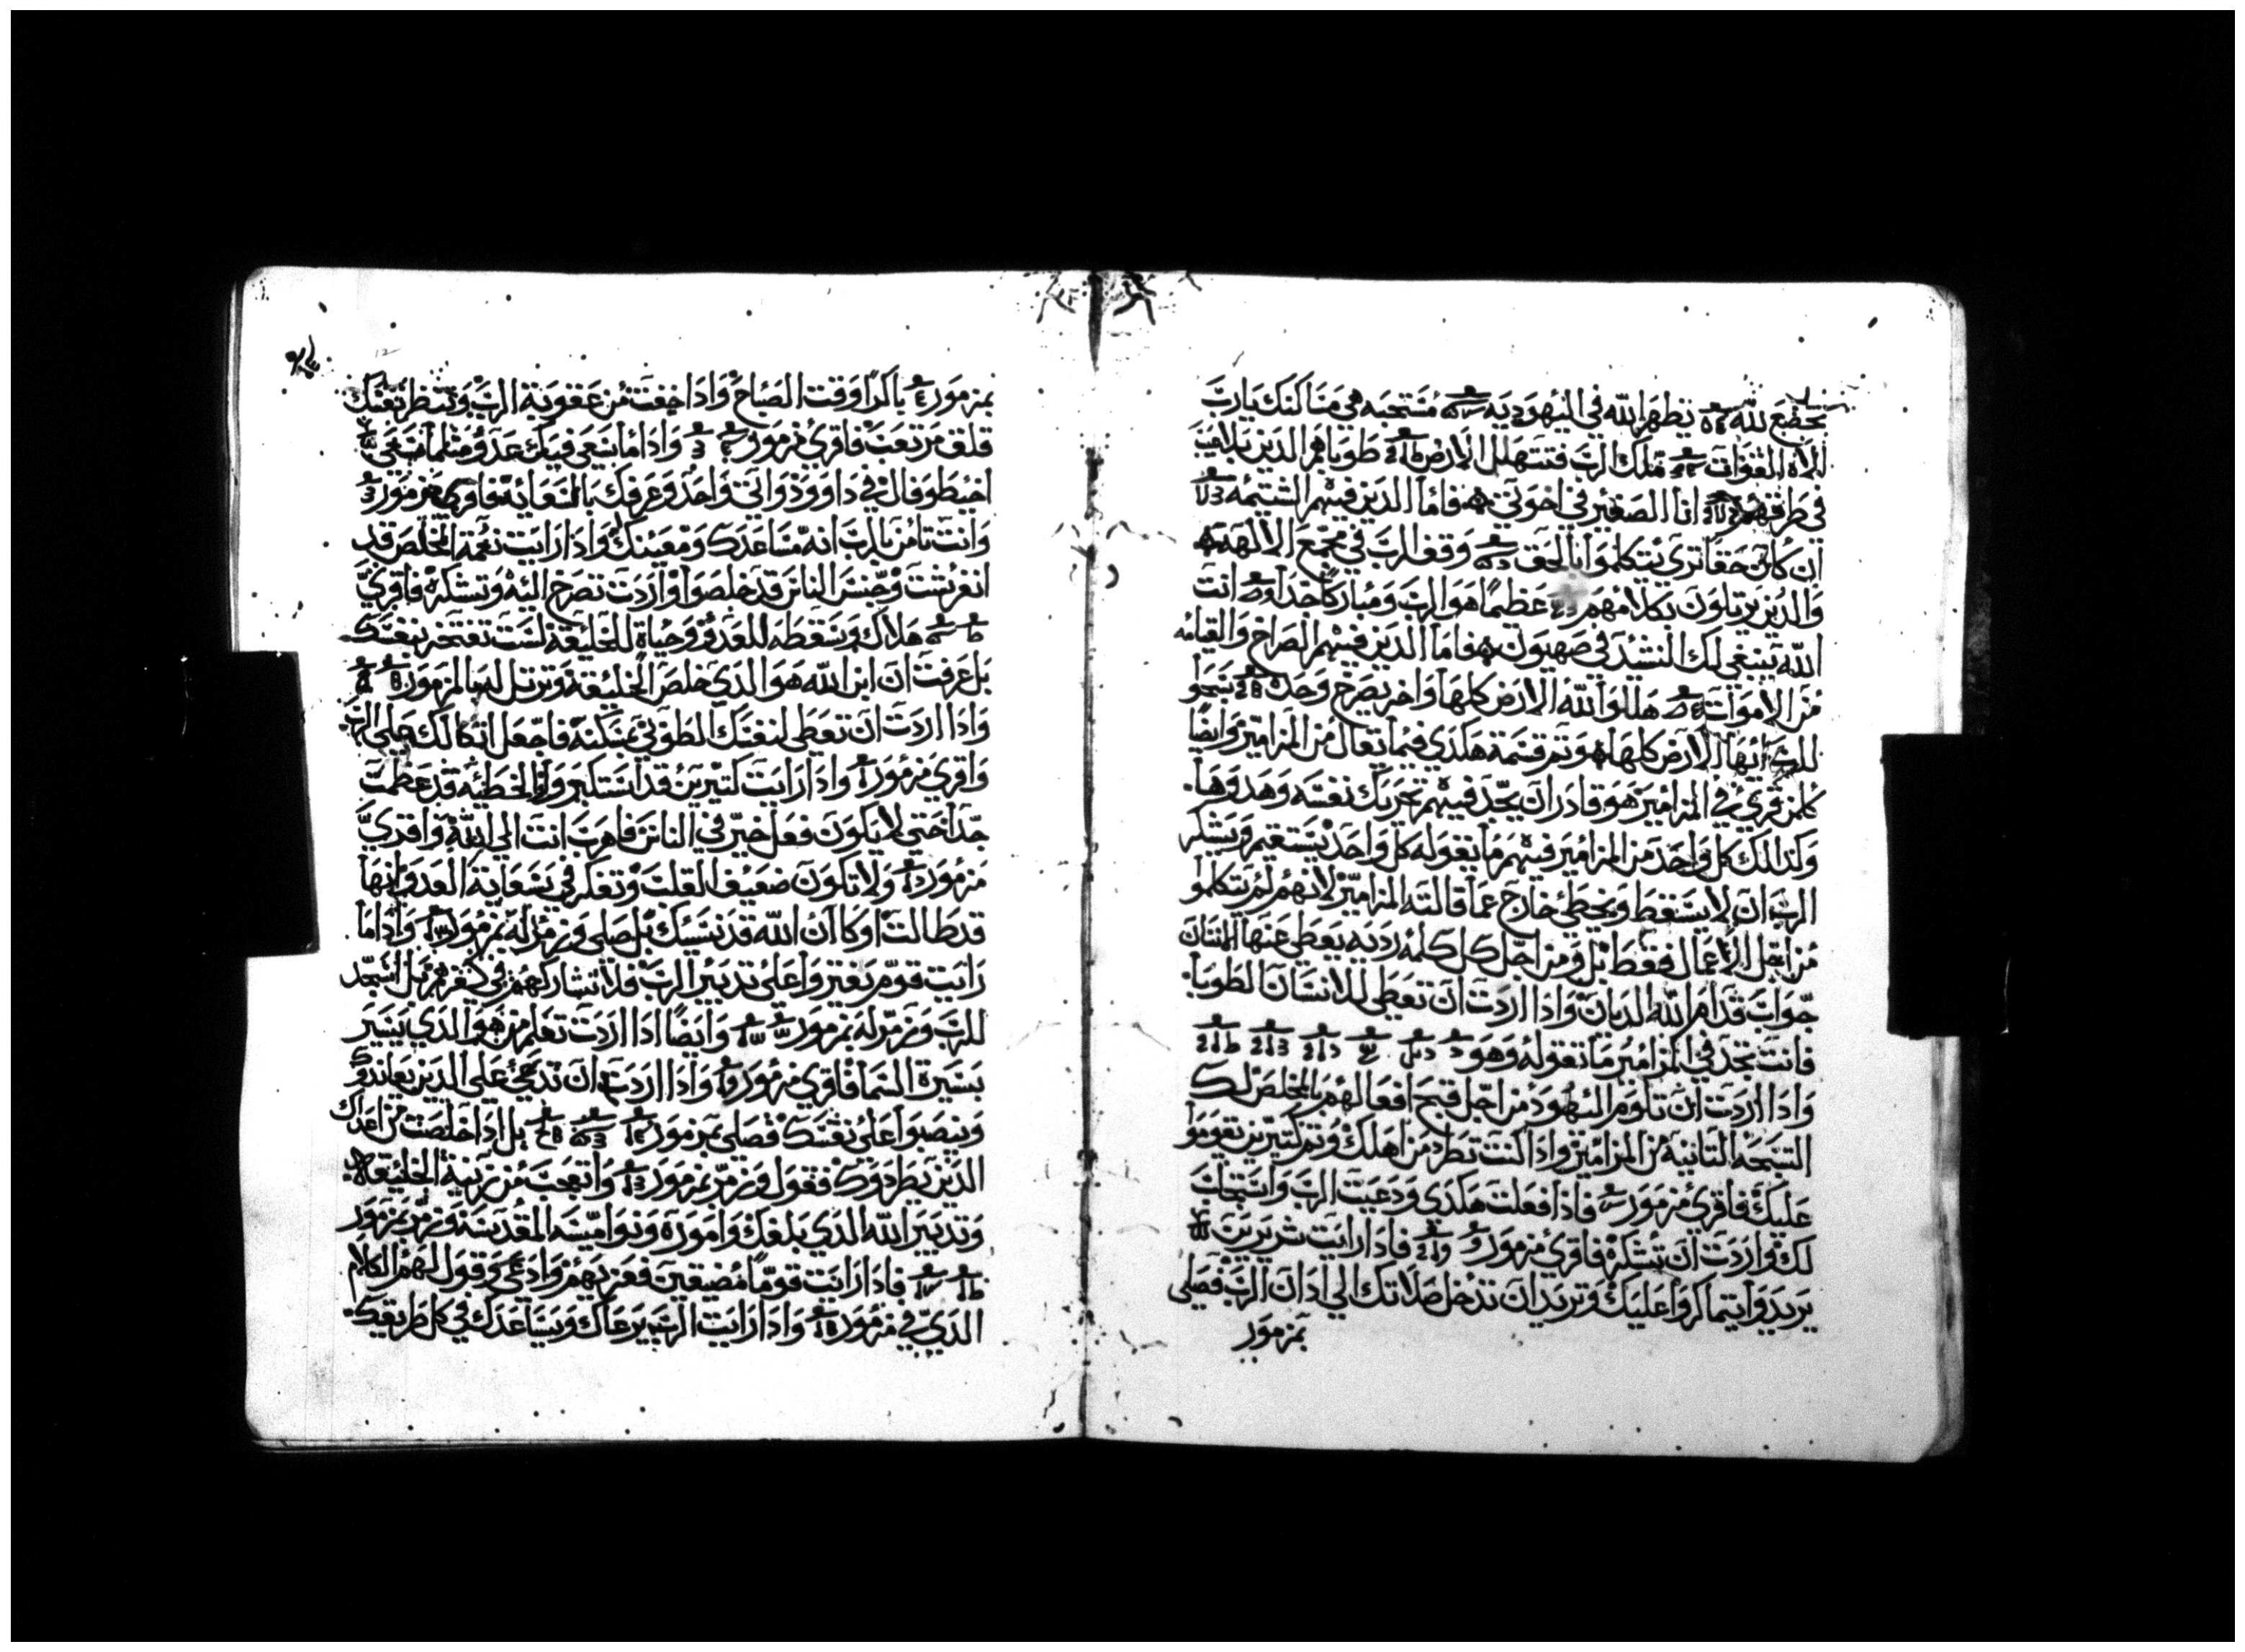 تخضع لله تظهر الله في اليهوديه مستحبه هي مساكنك يارب
الاه القوات ملك الرب فتتهلل الارض طوباهم الدين بلا عيب
في طريقهم انا الصغير في اخوتي فاما الدين فيهم الشتيمه
ان كان حقا تري تتكلموا بالحق وقف الرب في مجمع الالهه
والدين يرتلون بكلامهم عظيما هو الرب ومباركا جدا انت
الله ينبغي لك النشيد في صهيون فاما الدين فيهم الصراخ والقيامه
من الاموات هللوا لله الارض كلها واخر يصرخ وحده سبحوا
للرب ايتها الارض كلها وتم قسمة هكدي فيما يقال من المزامير وايضا
كلمن قري في المزامير هو قادر ان يجد فيهم تحريك نفسه وهدوها
ولدالك كل واحد من المزامير فيهم ما يقوله كل واحد يستقيم ويشكر
الرب ان لا يسقط ويخطي خارج عما قالته المزامير لانهم لم يتكلمو
من اجل الاعمال فقط بل ومن اجل كل كلمه رديه يعطي عنها الانسان
جواب قدام الله الديان وادا اردت ان تعطي للانسان الطوبا
فانت تجد في المزامير ما تقوله وهو
وادا اردت ان تلوم اليهود من اجل قبح افعالهم بالمخلص لك
التسبحه التانيه من المزامير وادا كنت تطرد من اهلك وتم كتيرين تقوموا
عليك فاقري مزمور فادا فعلت هكدي ودعيت الرب واستجاب
لك واردت ان تشكره فاقري مزمور فادا رايت شريرين
يريدوا يتماكروا عليك وتريد ان تدخل صلاتك الي ادان الرب فصلي
بمزمور
بمزمور باكرا وقت الصباح وادا خفت من عقوبة الرب وتنظر نفسك
قلق من تعب فاقري مزمور وادا ما يسعي فيك عدو متلما سعي
اخيطوفال في داوود واتي واحد وعرفك بالسعايه فاقري مزمور
وانت تامن بالرب انه مساعدك ومعينك وادا رايت نعمة المخلص قد
انفرشت وجنس الناس قد خلصوا واردت تصرخ اليه وتشكره فاقري
هلاك وسقطه للعدو وحياة للخليقة لست تفتخر بنفسك
بل عرفت ان ابن الله هو الدي خلص الخليقة وترتل له بالمزمور
وادا اردت ان تعطي لنفسك الطوبي بمسكنه فاجعل اتكالك علي الرب
واقري مزمور وادا رايت كتيرين قد استكبروا والخطيه قد عظمت
جدا حتي لا يكون فعل خير في الناس فاهرب انت الي الله واقري
مزمور ولا تكون ضعيف القلب وتفكر في سعاية العدو انها
قد طالت او كان الله قد نسيك بل صلي وزمر له بمزمور وادا ما
رايت قوم يفتروا علي تدبير الرب فلا تشاركهم في كفرهم بل اسجد
للرب وزمر له بمزمور وايضا ادا اردت تعلم من هو الدي يسير
بسيرة السما فاقري مزمور وادا اردت ان تدعي علي الدين يعاندوك
وينصبوا علي نفسك فصلي بمزمور بل ادا خلصت من اعداك
الدين يطردوك فقول وزمر بمزمور واتعجب من زينة الخليقه
وتدبير الله الدي بلغك واموره ونواميسه المقدسه وزمر بمزمور
فادا رايت قوما مضيقين فعزيهم وادعي وقول لهم الكلام
الدي في مزمور وادا رايت الرب يرعاك ويساعدك في كل طريقك